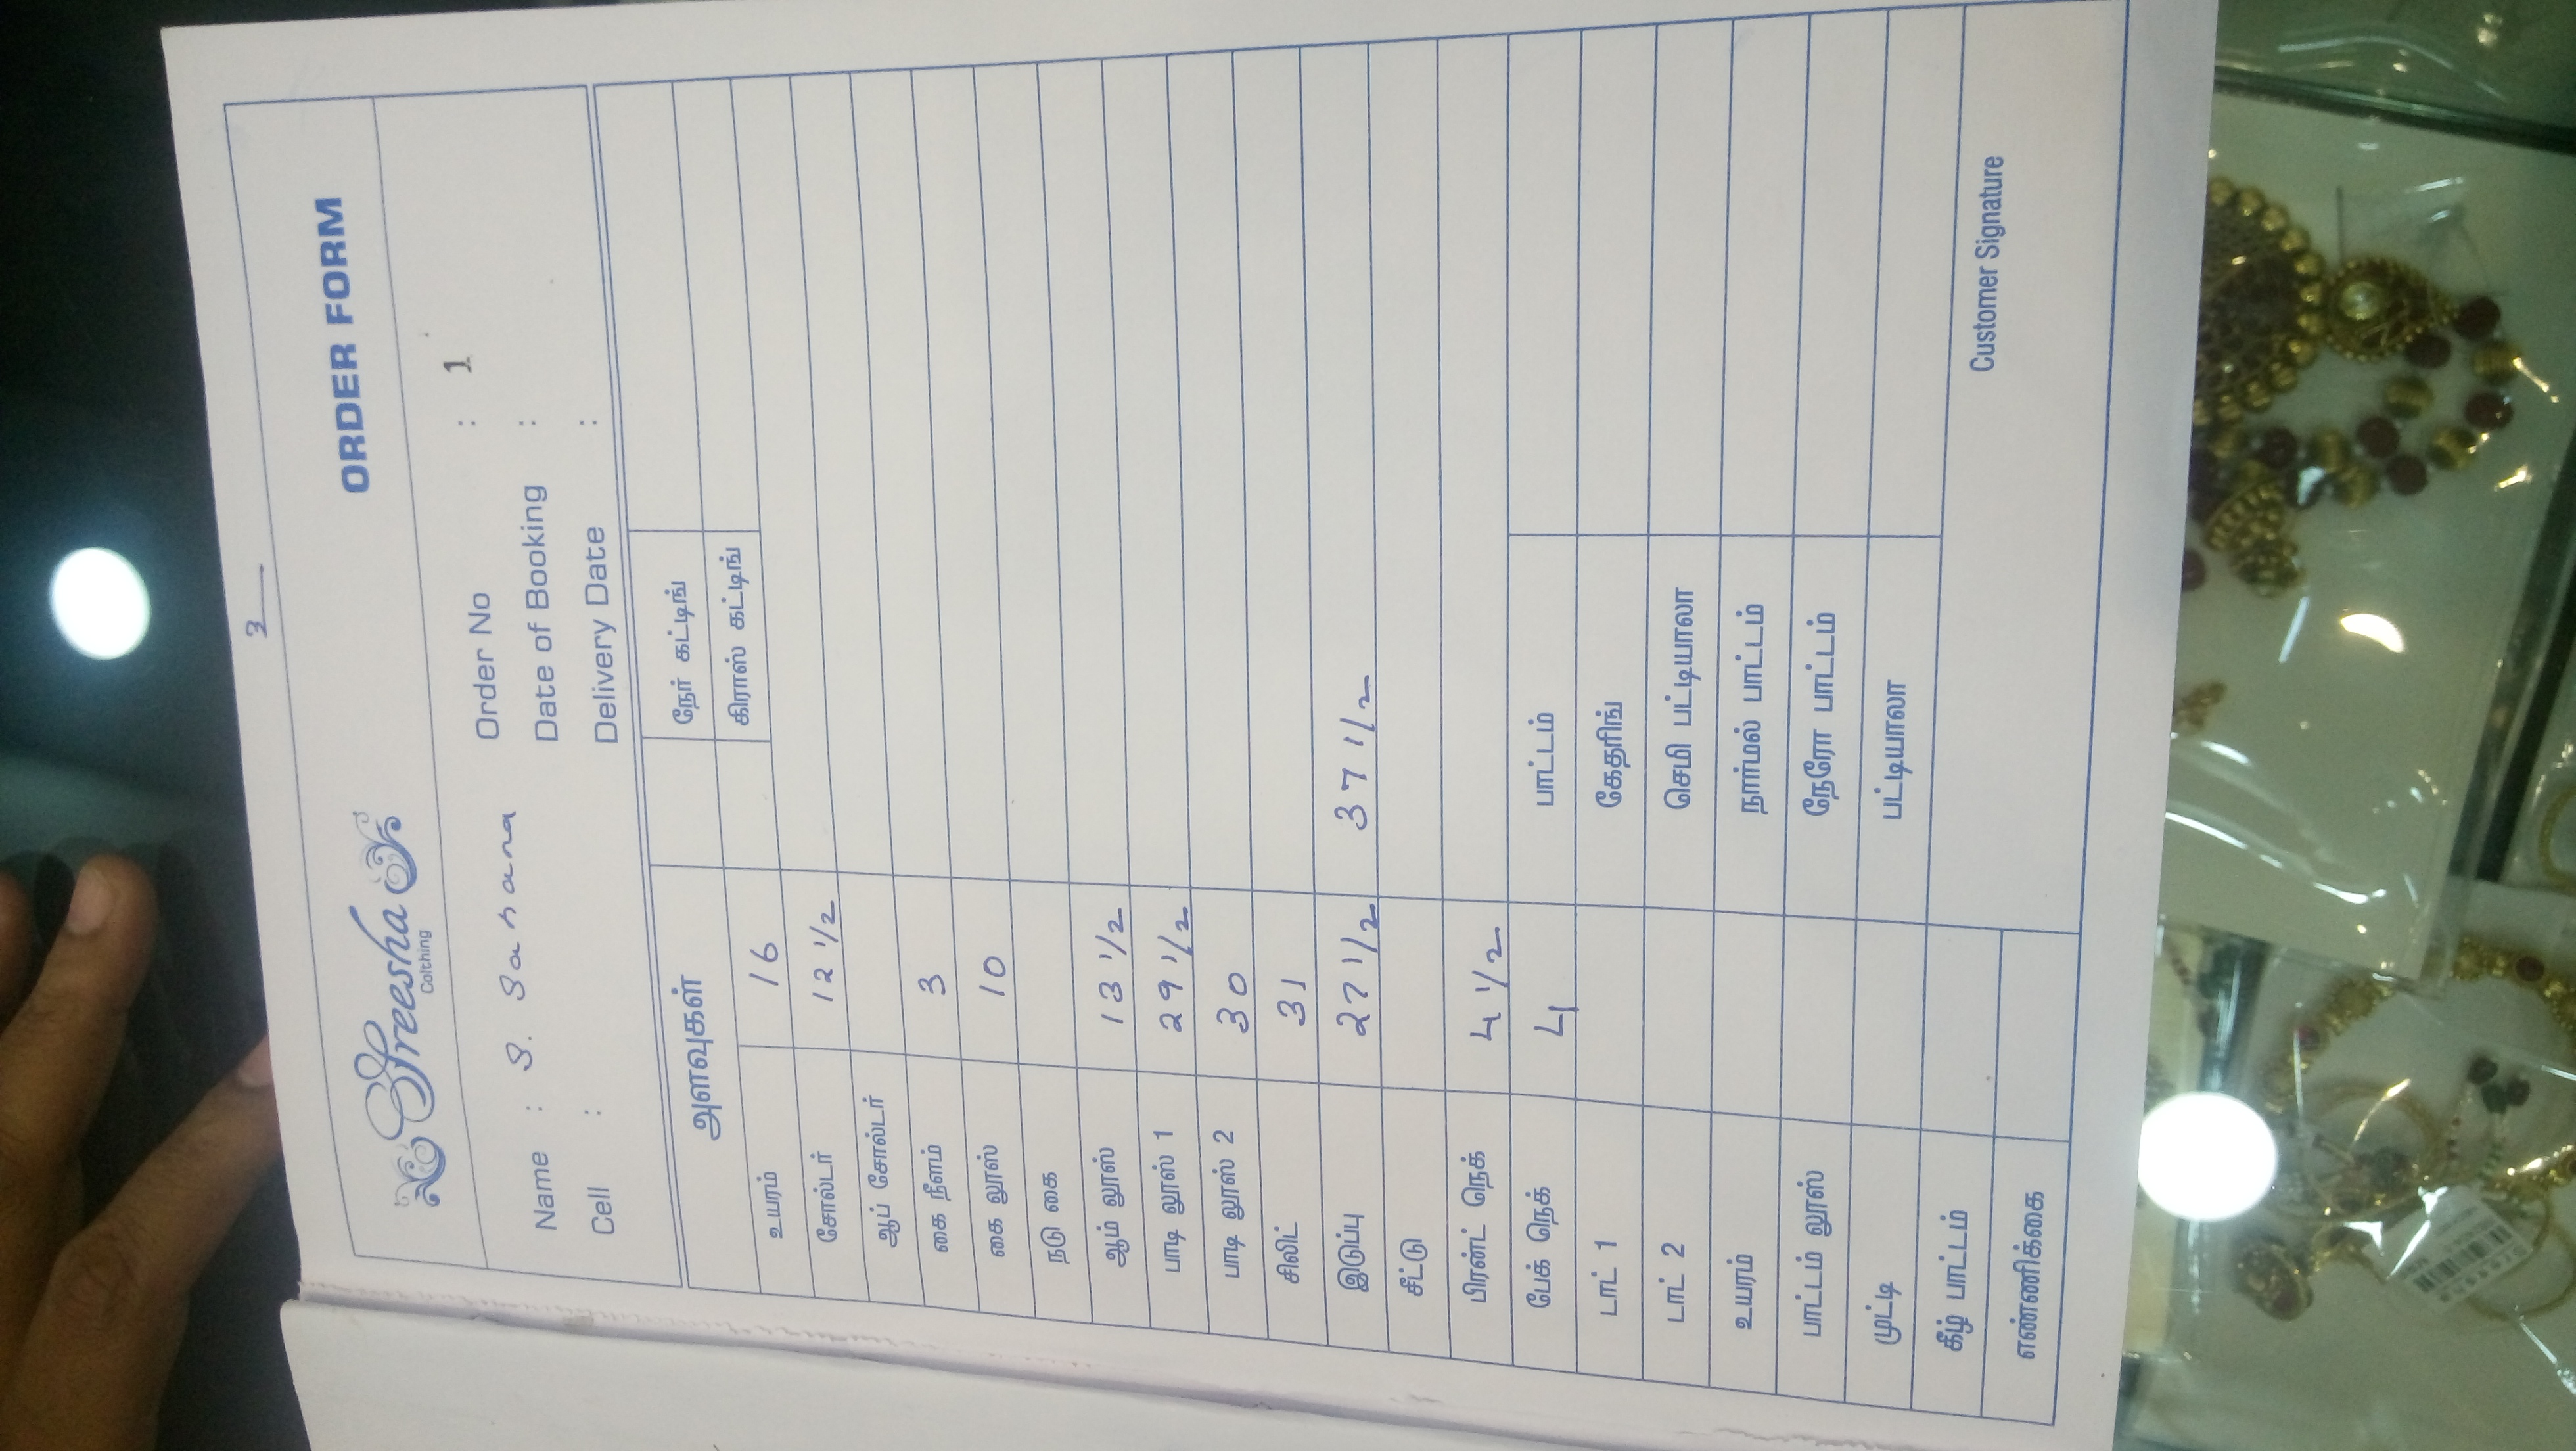 3
Sreesha
Colthing
ORDER FORM
Name : S. Sahana
Order No : 1
Cell :
Date of Booking :
Delivery Date :
அளவுகள்
நேர் கட்டிங்
கிராஸ் கட்டிங்
உயரம் 16
சோல்டர் 12 1/2
ஆப் சோல்டர்
கை நீளம் 3
கை லூஸ் 10
நடு கை
ஆம் லூஸ் 13 1/2
பாடி லூஸ் 1 29 1/2
பாடி லூஸ் 2 30
சிலிட் 31
இடுப்பு 27 1/2 37 1/2
சீட்டு
பிரன்ட் நெக் 4 1/2
பேக் நெக் 4 பாட்டம்
டாட் 1 கேதரிங்
டாட் 2 செமி பட்டியாலா
உயரம் நார்மல் பாட்டம்
பாட்டம் லூஸ் நேரோ பாட்டம்
முட்டி பட்டியாலா
கீழ் பாட்டம்
Customer Signature
எண்ணிக்கை